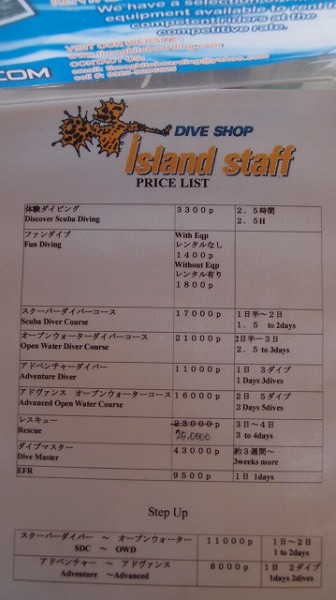 We have a selection
equipment available to
competent riders at the
competitive rate.
VISIT OUR WEBSITE
CONTACT US:
.COM
DIVE SHOP
island staff
PRICE LIST
体験ダイビング
Discover Scuba Diving
3300p
2.5時間
2.5H
ファンダイブ
Fun Diving
With Eqp
レンタルなし
1400p
Without Eqp
レンタル有り
1800p
スクーバーダイバーコース
Scuba Diver Course
17000p
1日半～2日
1.5 to 2days
オープンウォーターダイバーコース
Open Water Diver Course
21000p
2日半ー3日
2.5 to 3days
アドベンチャーダイバー
Adventure Diver
11000p
1日 3ダイブ
1Days 3dives
アドヴァンス オープンウォーターコース
Advanced Open Water Course
16000p
2日 5ダイブ
2Days 5dives
レスキュー
Rescue
23000p
3日～4日
3 to 4days
ダイブマスター
Dive Master
43000p
約3週間～
3weeks more
EFR
9500p
1日 1day
Step Up
スクーバーダイバー ～ オープンウォーター
SDC ～ OWD
11000p
1日～2日
1 to 2days
アドベンチャー ～ アドヴァンス
Adventure ～Advanced
8000p
1日 2ダイブ
1day 2dives